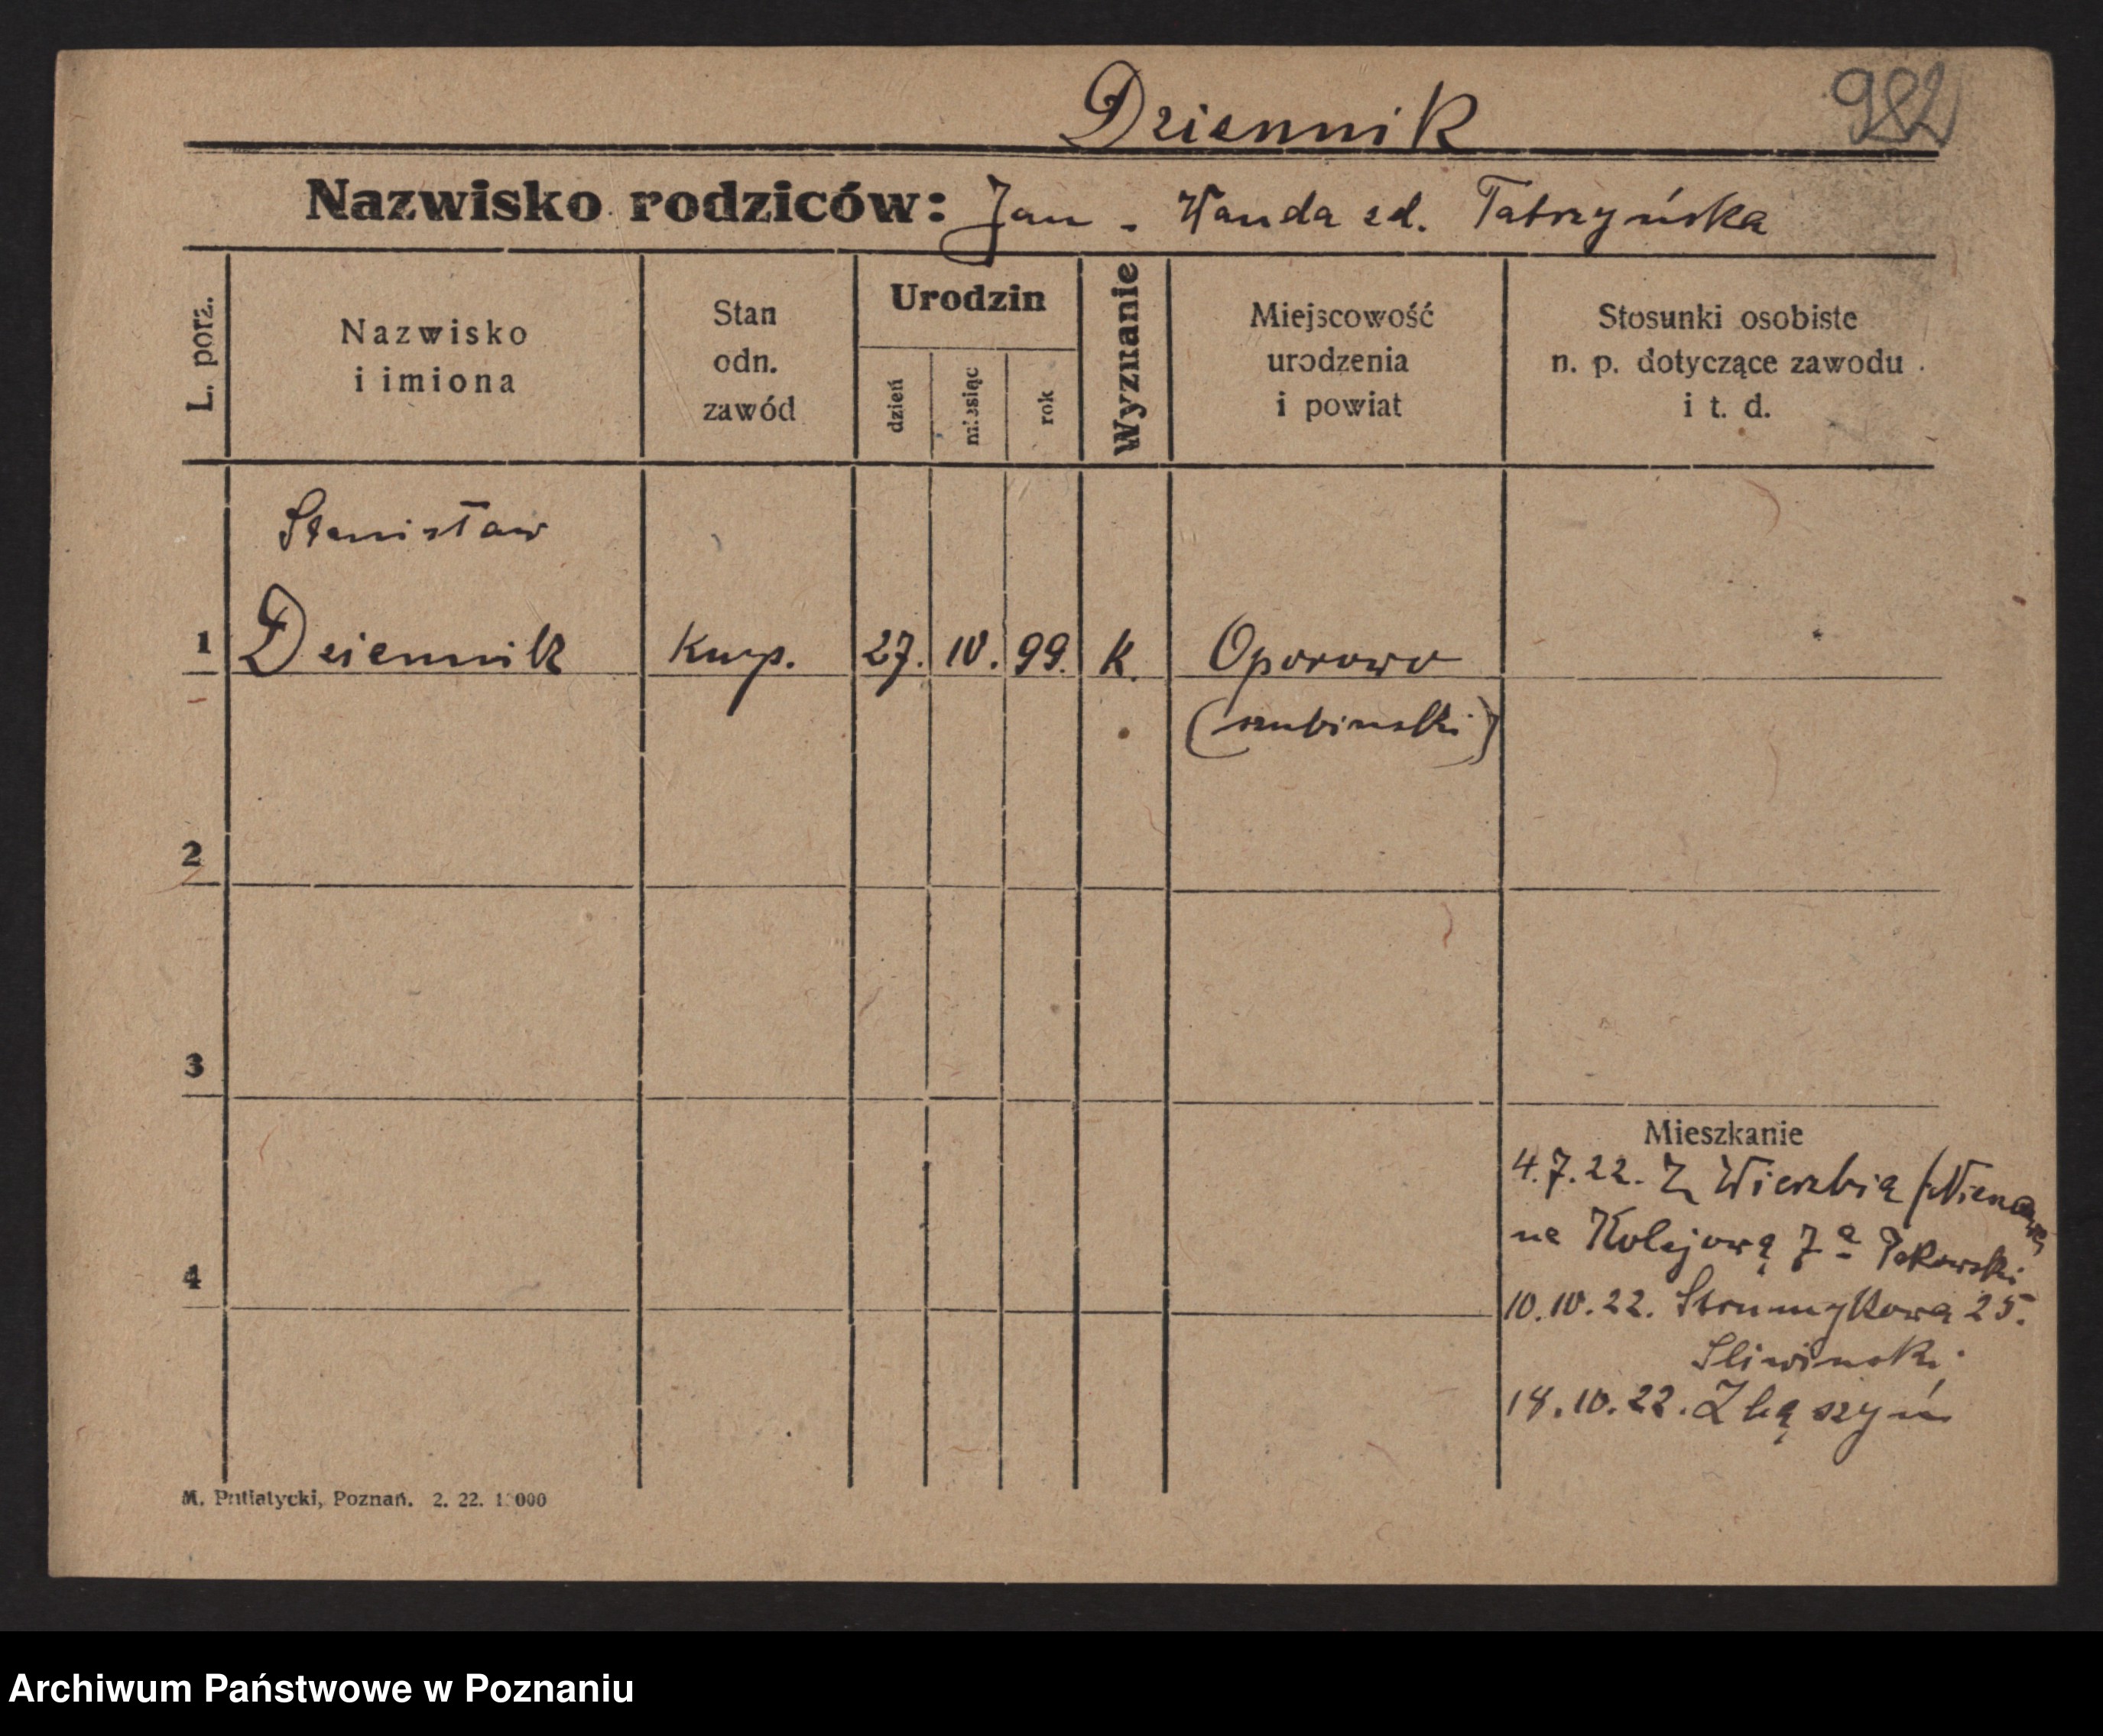 Dziennik
982
Nazwisko rodziców: Jan - Wanda zd. Tatrzyńska
L. porz.
Nazwisko
i imiona
Stan
odn.
zawód
Urodzin
dzień
miesiąc
rok
Wyznanie
Miejscowość
urodzenia
i powiat
Stosunki osobiste
n. p. dotyczące zawodu
i t. d.
Stanisław
1 Dziennik kup. 27. 10. 99. k. Oporowo
(szubinski)
2
3
4
Mieszkanie
4.7.22. Z
na Kolejową 7a
10.10.22. Strumykowa 25.
Sliwinski
18.10.22. Zbąszyń
M. Putiatycki, Poznań. 2. 22.
Archiwum Państwowe w Poznaniu